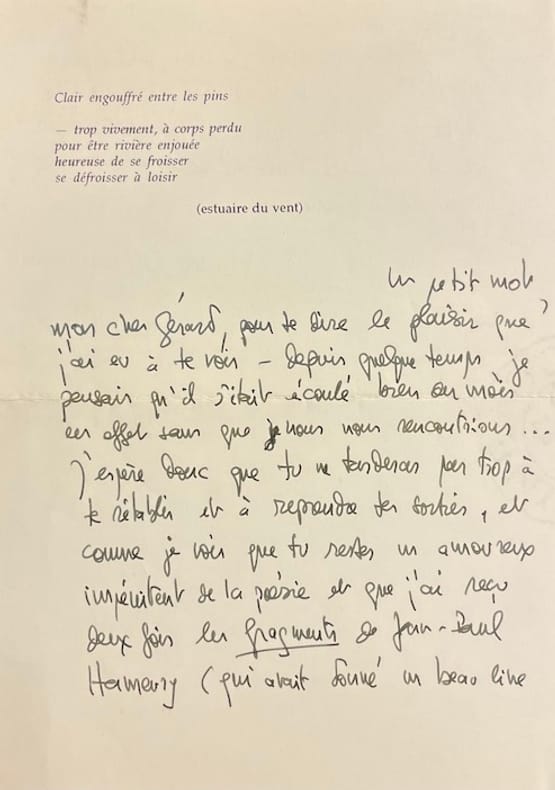 Clair engouffré entre les pins
— trop vivement, à corps perdu
pour être rivière enjouée
heureuse de se froisser
se défroisser à loisir
(estuaire du vent)
Un petit mot,
mon cher Gérard, pour te dire le plaisir que
j'ai eu à te voir – depuis quelque temps je
pensais qu'il s'était écoulé bien des mois
en effet sans que nous nous rencontrions ...
J'espère donc que tu ne tarderas pas trop à
te rétablir et à reprendre tes sorties, et
comme je vois que tu restes un amoureux
impénitent de la poésie et que j'ai reçu
deux fois les fragments de Jean-Paul
Hameury (qui avait donné un beau livre